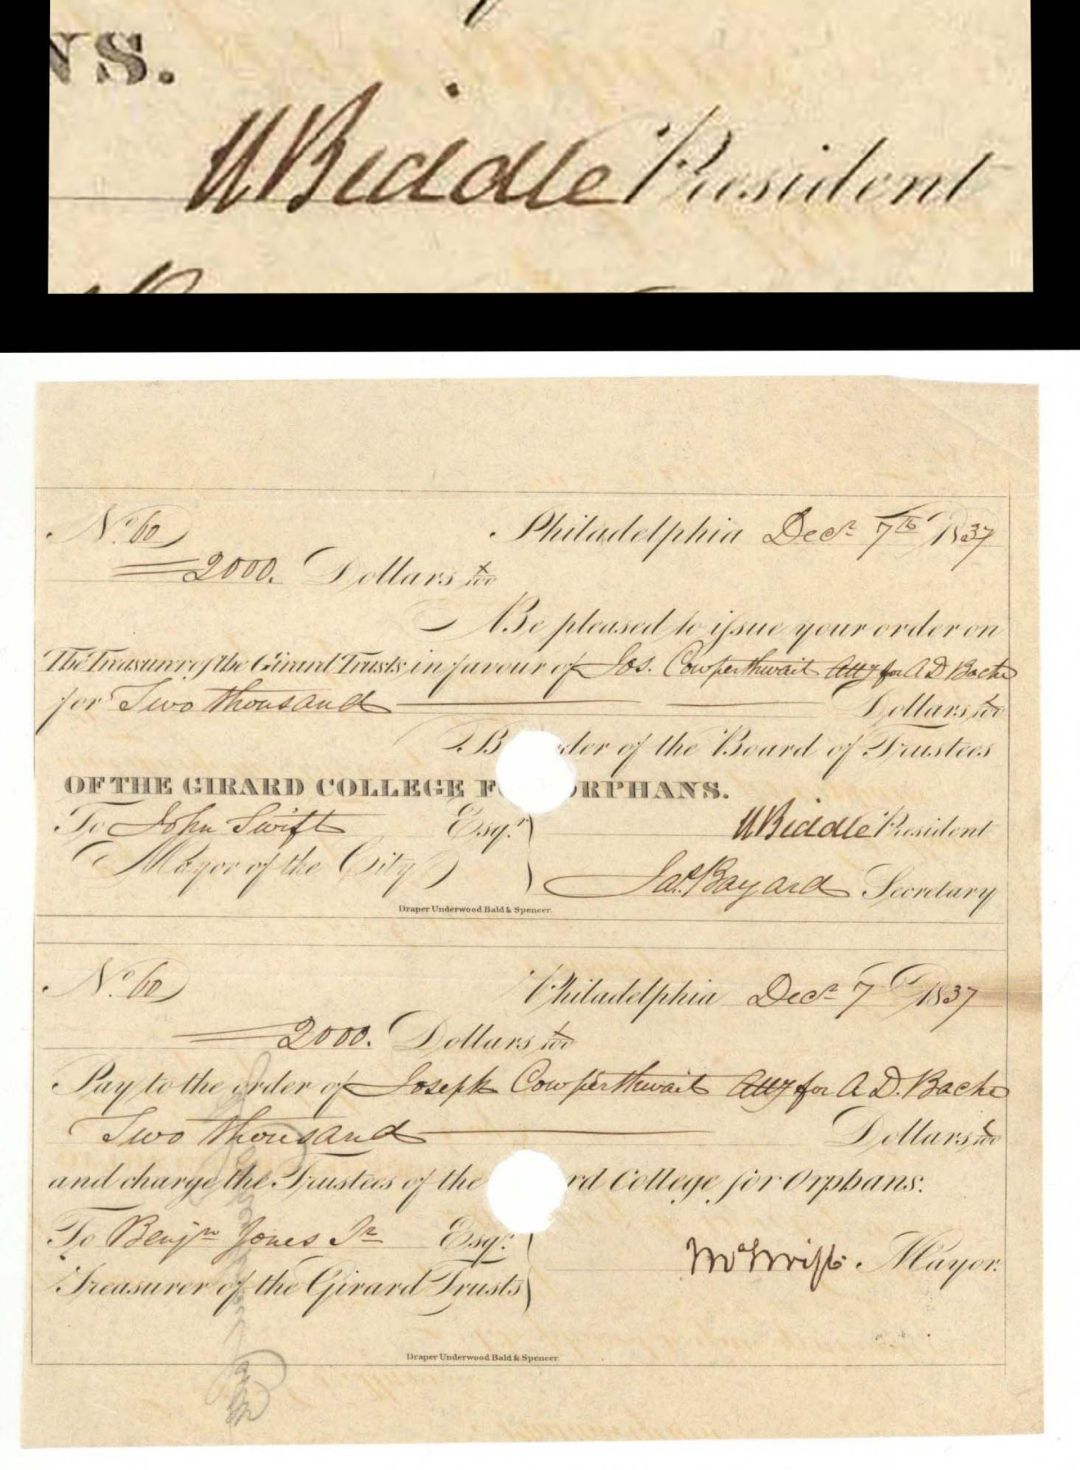 NS.
NBiddle President
No. 60 Philadelphia Decr 7th 1837
2000. Dollars 
Be pleased to issue your order on
The Treasurer of the Girard Trusts in favour of Jos. Cowperthwait Atty for A D Bache
for Two thousand Dollars
By order of the Board of Trustees
OF THE GIRARD COLLEGE F ORPHANS.
To John Swift Esqr. NBiddle President
Mayor of the City Jas. Bayard Secretary
Draper Underwood Bald & Spencer.
No. 60 Philadelphia Decr 7 1837
2000. Dollars
Pay to the order of Joseph Cowperthwait Atty for A. D. Bache
Two thousand Dollars
and charge the Trustees of the rd College for Orphans.
To Benjn Jones Jr Esqr.
Mayor.
Treasurer of the Girard Trusts
Draper Underwood Bald & Spencer.